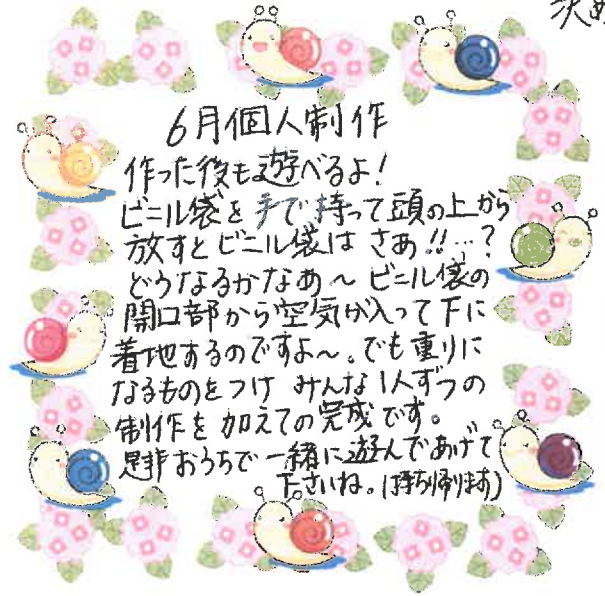 決め
6月個人制作
作った後も遊べるよ!
ビニル袋を手で持って頭の上から
放すとビニル袋は さあ!!…?
どうなるかなあ~ ビニル袋の
開口部から空気が入って下に
着地するのですよ~。でも重りに
なるものをつけ みんな1人ずつの
制作を加えての完成です。
是非おうちで一緒に遊んであげて
下さいね。(持ち帰ります)